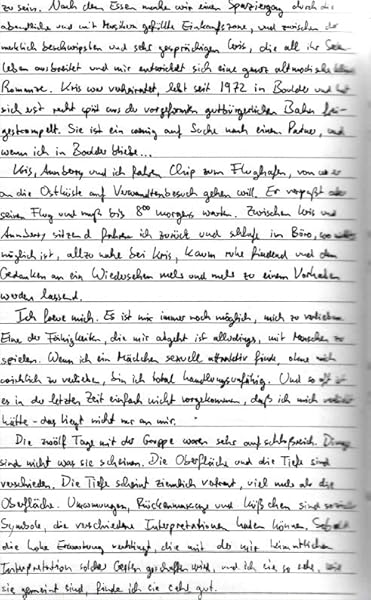 zu sein. Nach dem Essen machen wir einen Spaziergang durch die
abendliche und mit Musikern gefüllte Einkaufszone, und zwischen der
merklich beschwipsten und sehr gesprächigen Kris, die all ihr
Leben ausbreitet und mir entwickelt sich eine ganz altmodische kleine
Romanze. Kris war verheiratet, lebt seit 1972 in Boulder und hat
sich erst recht spät aus der vorgeformten gutbürgerlichen Bahn frei-
gestrampelt. Sie ist ein wenig auf Suche nach einem Partner, und
wenn ich in Boulder bliebe...
Kris, Annberg und ich fahren Chip zum Flughafen, von wo er
an die Ostküste auf Verwandtenbesuch gehen will. Er verpaßt aber
seinen Flug und muß bis 8⁰⁰ morgens warten. Zwischen Kris und
Annberg sitzend fahren ich zurück und schlafe im Büro, wo
möglich ist, allzu nahe bei Kris, kaum ruhe findend und den
Gedanken an ein Wiedersehen mehr und mehr zu einem Vorhaben
werden lassend.
Ich freue mich. Es ist mir immer noch möglich, mich zu verlieben.
Eine der Fähigkeiten, die mir abgeht ist allerdings, mit Menschen zu
spielen. Wenn ich ein Mädchen sexuell attraktiv finde, ohne mich
wirklich zu verlieben, bin ich total handlungsunfähig. Und so oft ist
es in der letzten Zeit einfach nicht vorgekommen, daß ich mich verliebt
hätte - das liegt nicht nur an mir.
Die zwölf Tage mit der Gruppe waren sehr aufschlußreich. Dinge
sind nicht was sie scheinen. Die Oberfläche und die Tiefe sind
verschieden. Die Tiefe scheint ziemlich vertraut, viel mehr als die
Oberfläche. Umarmungen, Rückenmassage und Küßchen sind
Symbole, die verschiedene Interpretationen haben können. Sobald
die hohe Erwartung verklingt, die mit der mir heimatlichen
Interpretation solcher Gesten geschaffen wird, und ich sie so sehe, wie
sie gemeint sind, finde ich sie sehr gut.